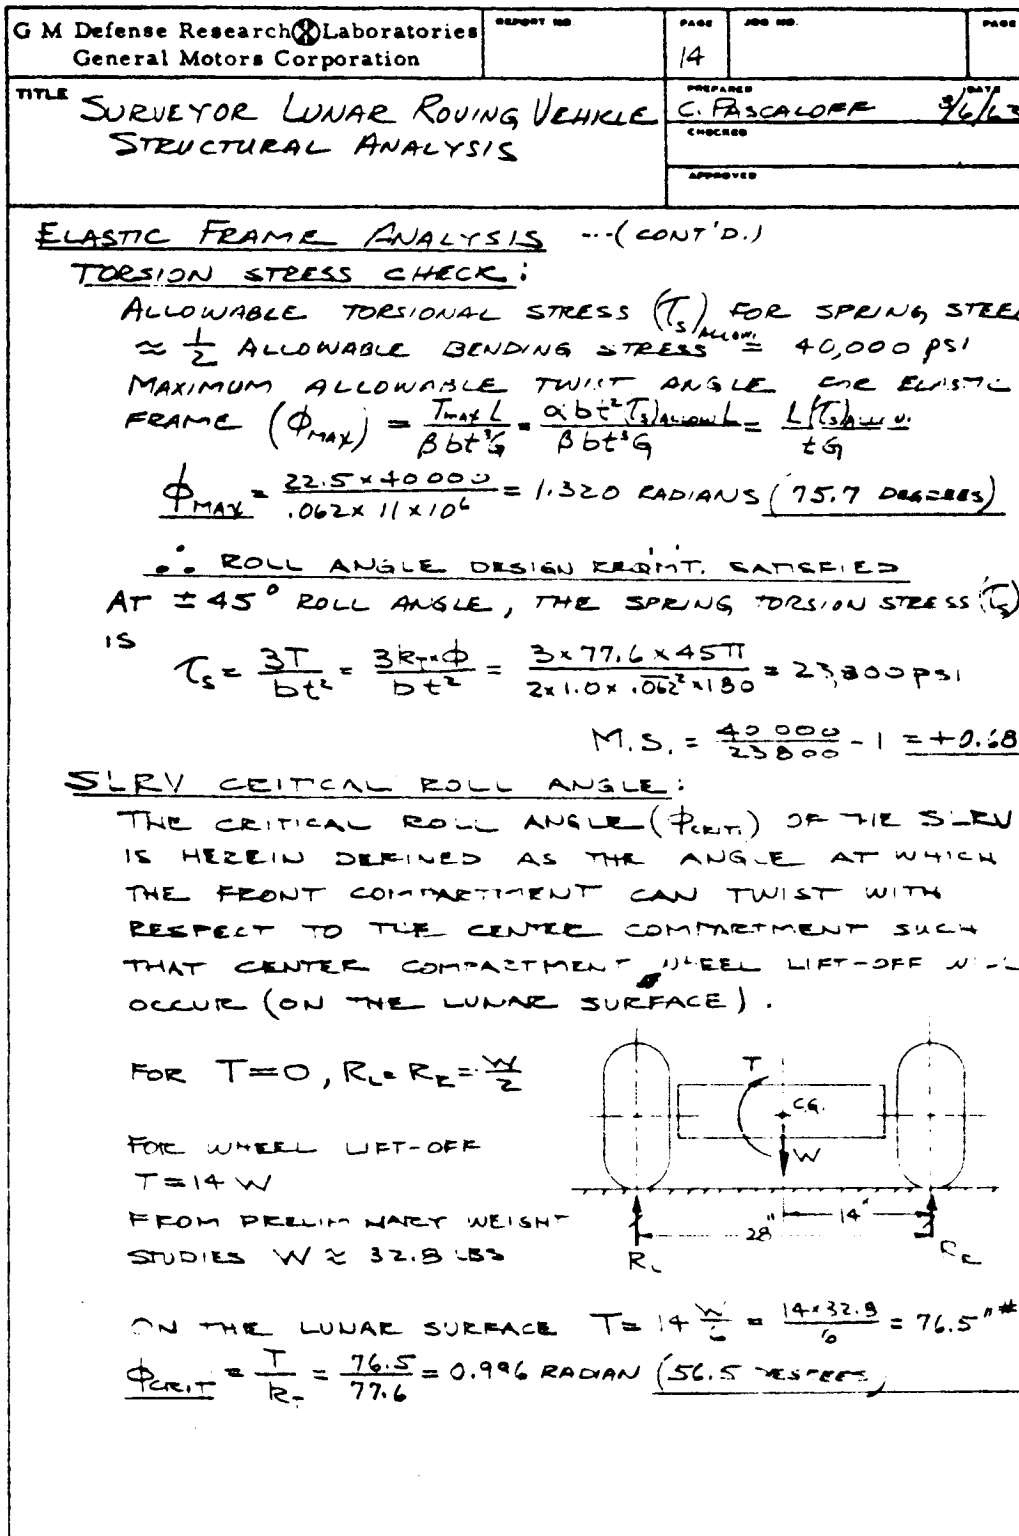 G M Defense Research Laboratories
General Motors Corporation
REPORT NO
PAGE
14
JOB NO.
PAGE
TITLE
SURVEYOR LUNAR ROVING VEHICLE
STRUCTURAL ANALYSIS
PREPARED
C. PASCALOFF
DATE
3/6/63
CHECKED
APPROVED
ELASTIC FRAME ANALYSIS ---(CONT'D.)
TORSION STRESS CHECK:
ALLOWABLE TORSIONAL STRESS (τs)ALLOW. FOR SPRING STEEL
≈ 1/2 ALLOWABLE BENDING STRESS = 40,000 PSI
MAXIMUM ALLOWABLE TWIST ANGLE FOR ELASTIC
FRAME (ϕMAX) = Tmax L / βbt³G = αbt²(τs)ALLOW L / βbt³G = L(τs)ALLOW. / tG
ϕMAX = 22.5 × 40000 / .062 × 11 × 10⁶ = 1.320 RADIANS (75.7 DEGREES)
∴ ROLL ANGLE DESIGN REQ'M'T. SATISFIED
AT ±45° ROLL ANGLE, THE SPRING TORSION STRESS (τs)
IS
τs = 3T / bt² = 3kT×ϕ / bt² = 3 × 77.6 × 45π / 2×1.0×.062²×180 = 23,800 PSI
M.S. = 40 000 / 23 800 - 1 = +0.68
SLRV CRITICAL ROLL ANGLE:
THE CRITICAL ROLL ANGLE (ϕCRIT.) OF THE SLRV
IS HEREIN DEFINED AS THE ANGLE AT WHICH
THE FRONT COMPARTMENT CAN TWIST WITH
RESPECT TO THE CENTER COMPARTMENT SUCH
THAT CENTER COMPARTMENT WHEEL LIFT-OFF WILL
OCCUR (ON THE LUNAR SURFACE).
FOR T=0, RL = RR = W/2
FOR WHEEL LIFT-OFF
T = 14 W
FROM PRELIMINARY WEIGHT
STUDIES W ≈ 32.8 LBS
T
C.G.
W
14"
28"
RL
RR
ON THE LUNAR SURFACE T = 14 W/6 = 14×32.8 / 6 = 76.5"#
ϕCRIT = T / kT = 76.5 / 77.6 = 0.996 RADIAN (56.5 DEGREES)